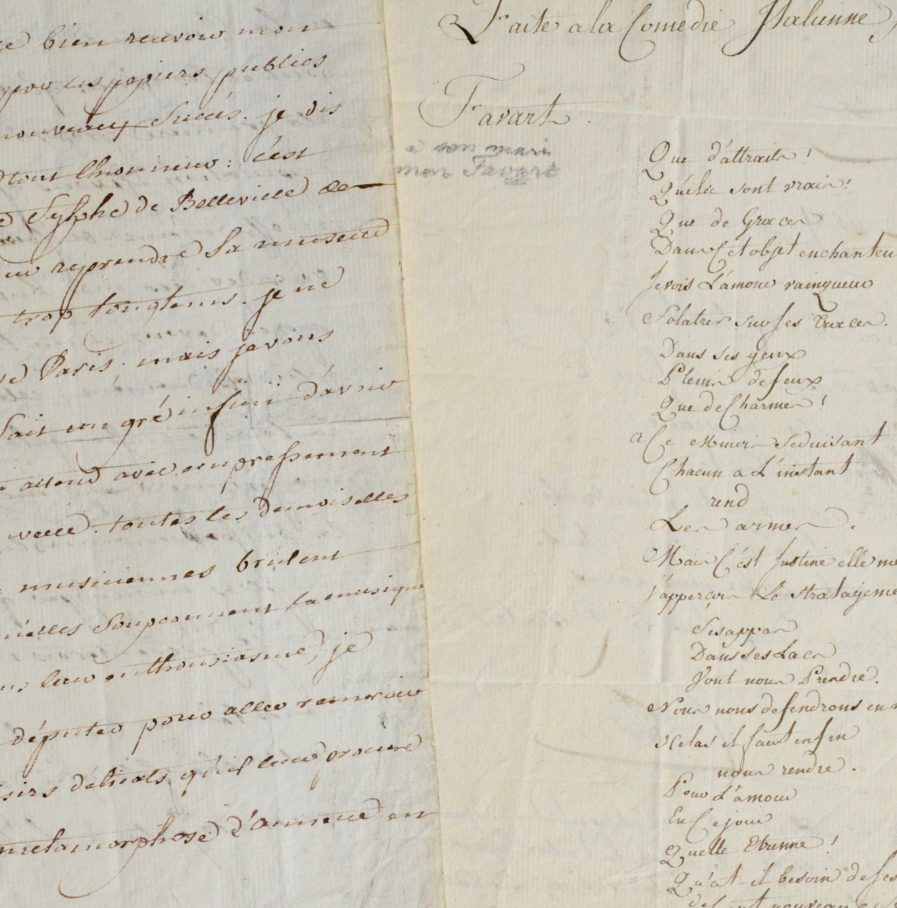 bien recevoir mon
par les papiers publics
nouveaux Succés. je dis
tout l'honneur : c'est
Sylphe de Belleville de
reprendre Sa musette
trop longtems. je ne
Paris. mais je vous
Sait un gré infini d'avoir
attend avec empressement
toutes les demoiselles
musiciennes brulent
qu'elles Soupconnent la musique
leur enthousiasme, je
députée pour aller remercier
délicats qu'il leur procure
metamorphose d'annete en
Faite a la Comedie Italienne
Favart
à son mari
mon Favart
Que d'attraits !
Qu'elle sont vrais !
Que de Graces
Dans Cet objet enchanteur
Je vois L'amour vainqueur
Folatrer sur ses traces.
Dans ses yeux
Pleins de feux
Que de Charmes !
a Ce Minois Seduisant
Chacun a L'instant
rend
Les armes.
Mais C'est Justine elle me
J'apperçois Le Stratajeme
Ses appas
Dans ses Lacs
Vont nous Prendre.
Nous nous defendrons en
Helas il faut enfin
nous rendre.
Pour L'amour
En Ce jour
Quelle Etrenne !
Qu'at-il besoin de ses